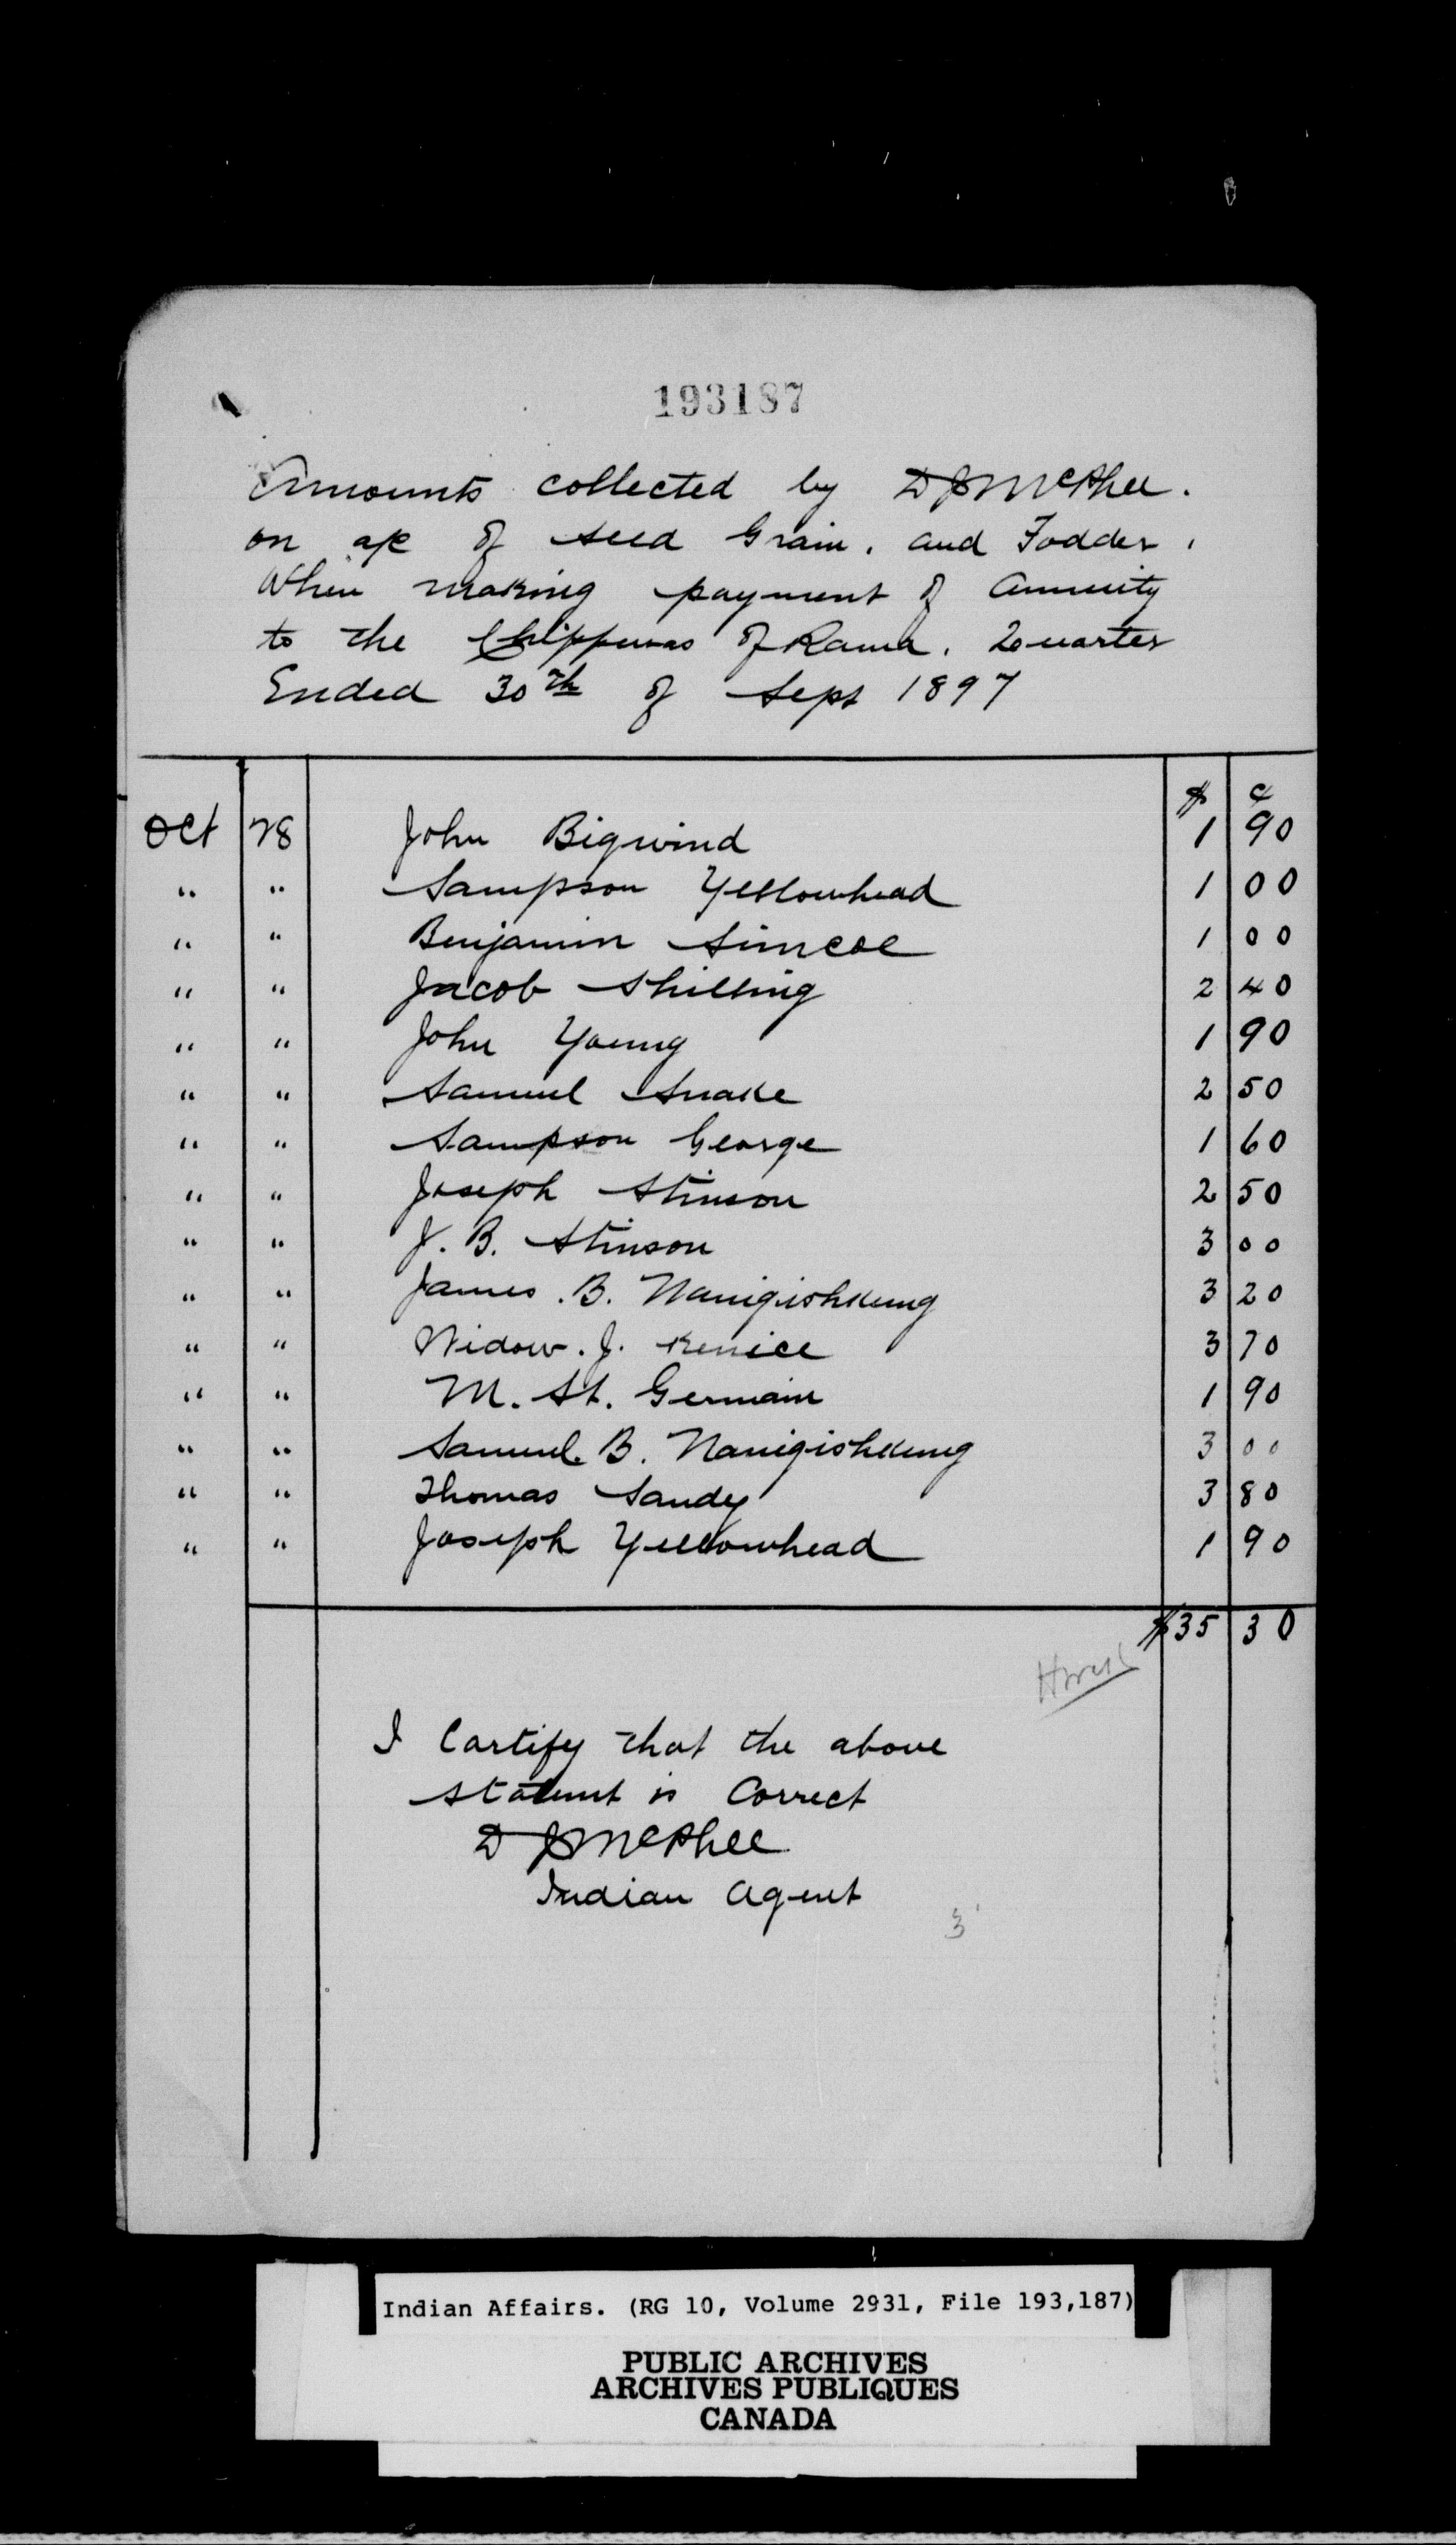 193187
Amounts collected by D J McPhee.
on a/c of Seed Grain. and Fodder.
When making payment of Annuity
to the Chippewas of Rama. Quarter
Ended 30th of Sept 1897
$ c
Oct 28 John Bigwind 1 90
" " Sampson Yellowhead 1 00
" " Benjamin Simcoe 1 00
" " Jacob Shilling 2 40
" " John Young 1 90
" " Samuel Snake 2 50
" " Sampson George 1 60
" " Joseph Stinson 2 50
" " J. B. Stinson 3 00
" " James. B. Nanigishkung 3 20
" " Widow. J. Kenice 3 70
" " M. St. Germain 1 90
" " Samuel. B. Nanigishkung 3 00
" " Thomas Sandy 3 80
" " Joseph Yellowhead 1 90
$35 30
I Certify that the above
statemt is Correct
D J McPhee
Indian Agent
3
Indian Affairs. (RG 10, Volume 2931, File 193,187)
PUBLIC ARCHIVES
ARCHIVES PUBLIQUES
CANADA